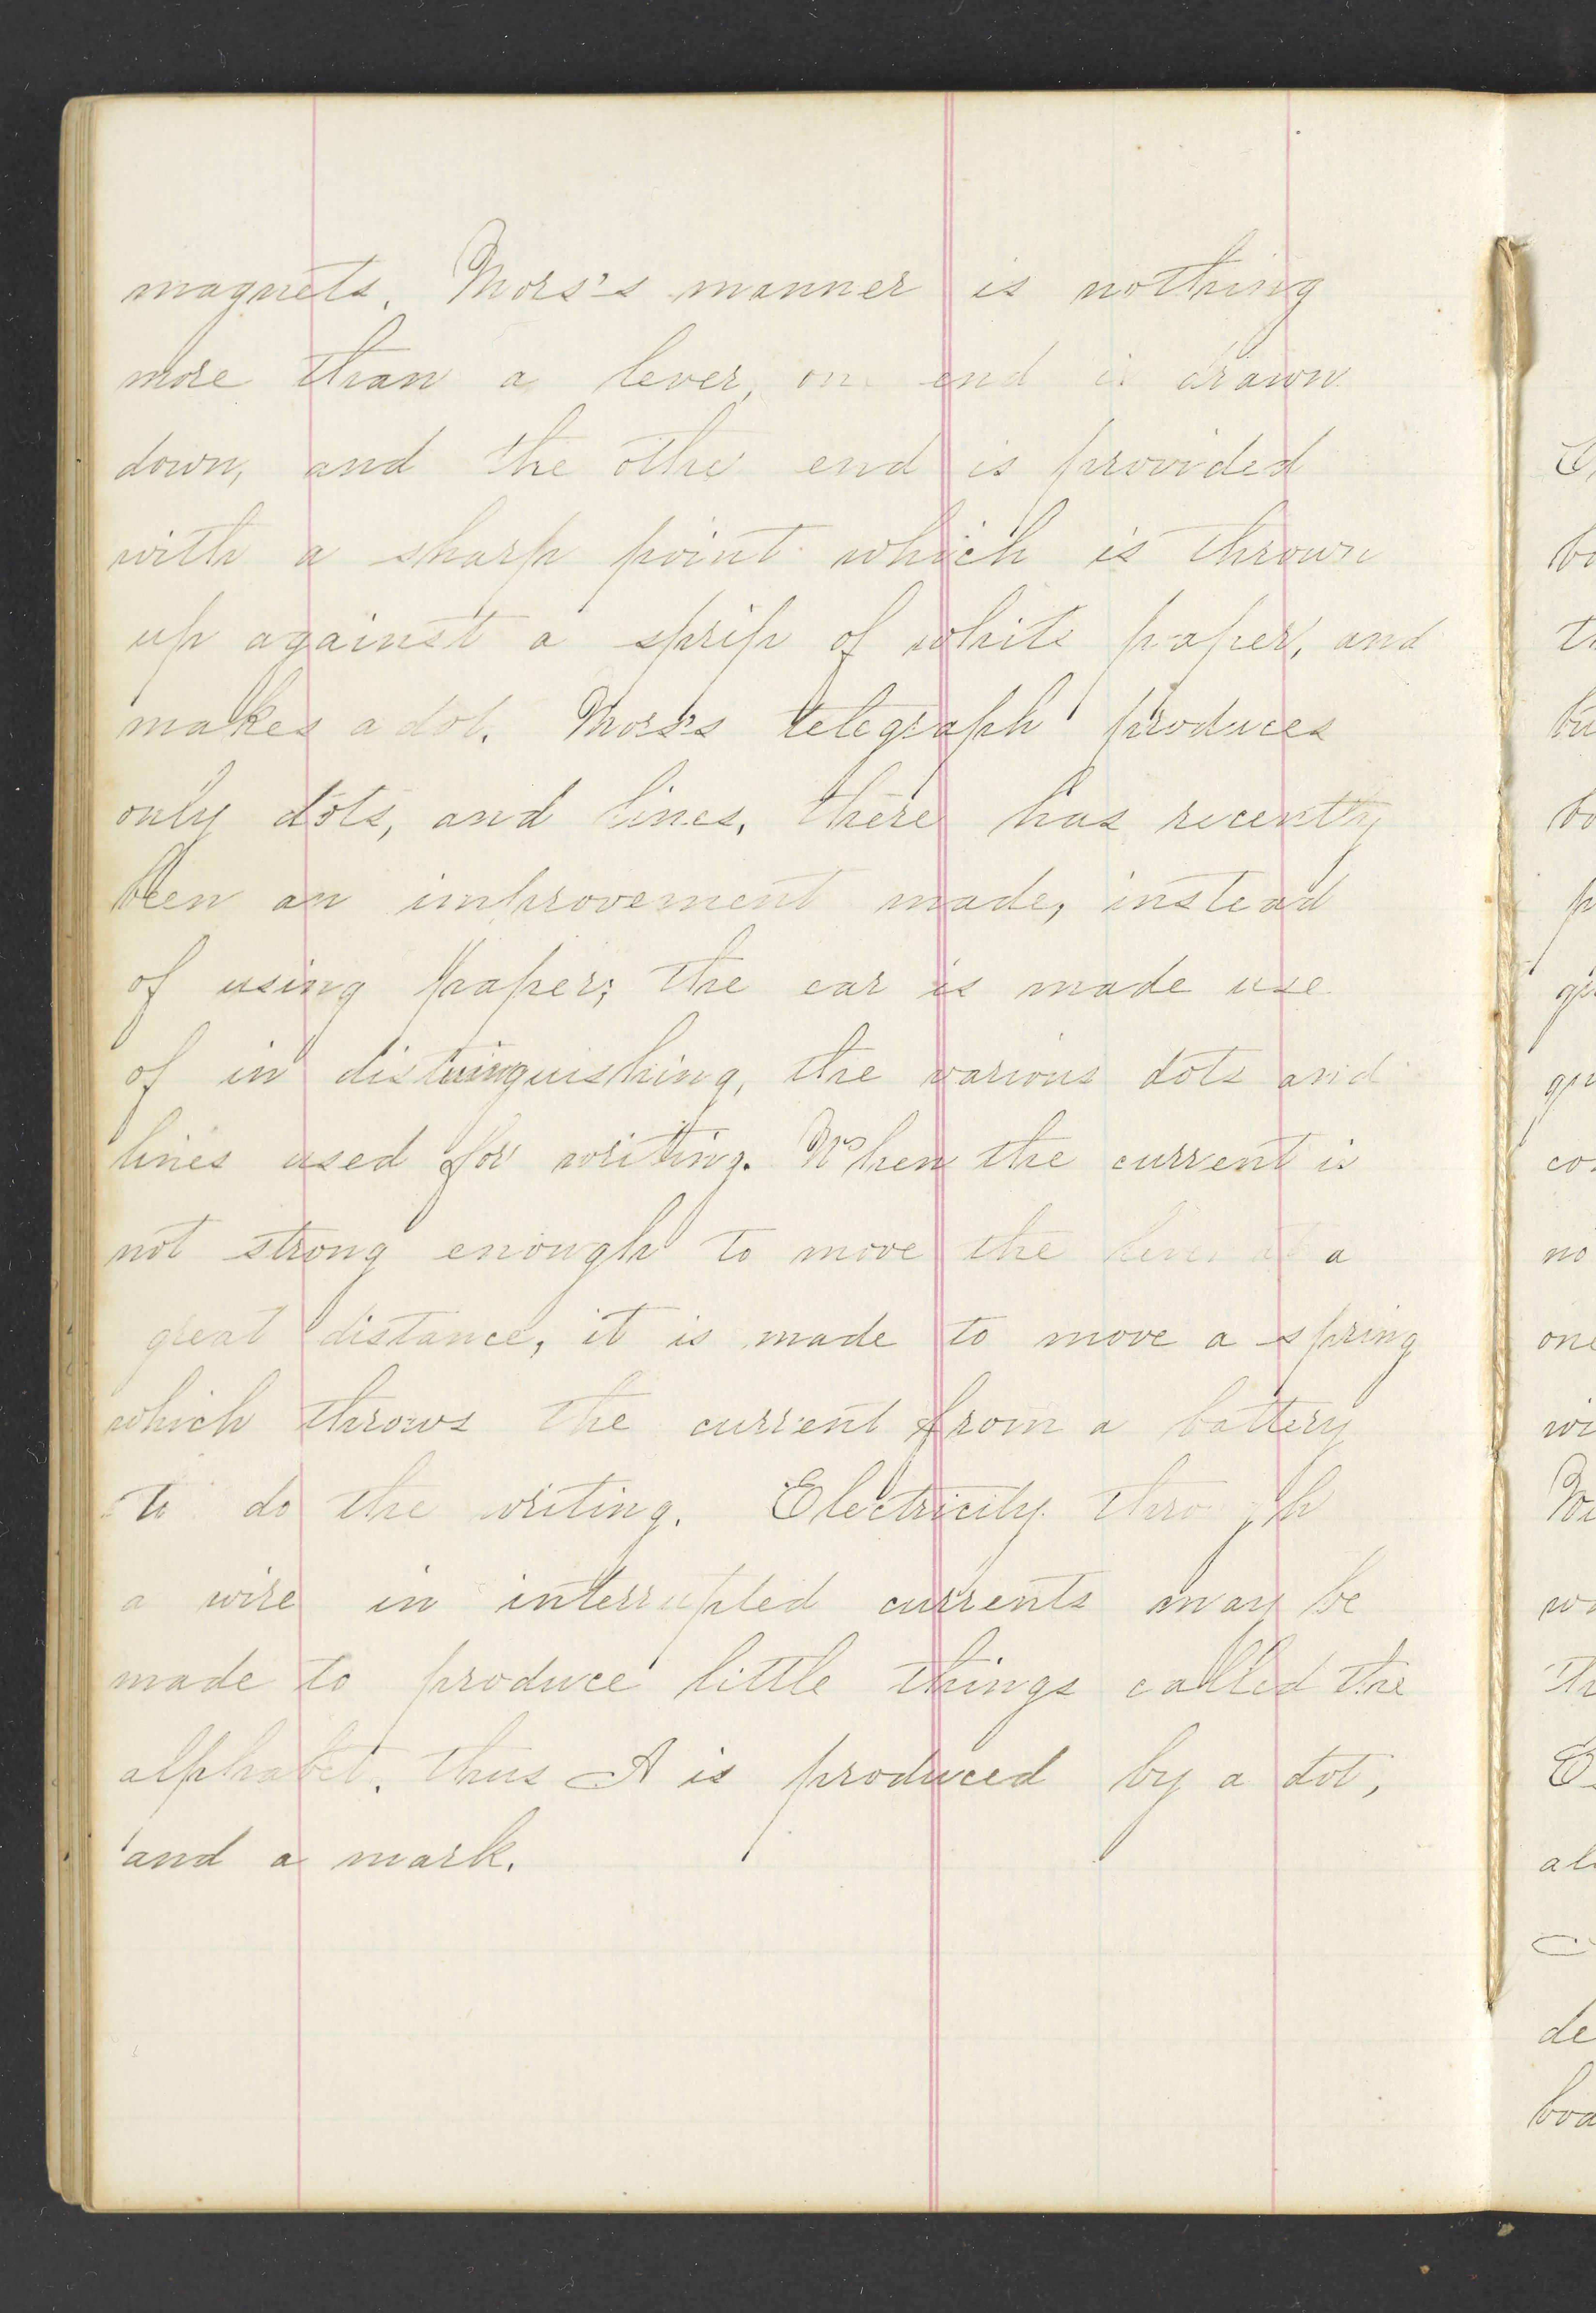 magnets. Mors's manner is nothing
more than a lever, one end is drawn
down, and the othe end is provided
with a sharp point which is thrown
up against a sprip of white paper, and
makes a dot. Mors's telegraph produces
only dots, and lines, there has recently
been an improvement made, instead
of using paper; the ear is made use
of in distuinguishing, the various dots and
lines used for writing. When the current is
not strong enough to move the lever at a
great distance, it is made to move a spring
which throws the current from a battery
to do the writing. Electricity through
a wire in interrupted currents may be
made to produce little things called the
alphabet. thus A is produced by a dot,
and a mark.